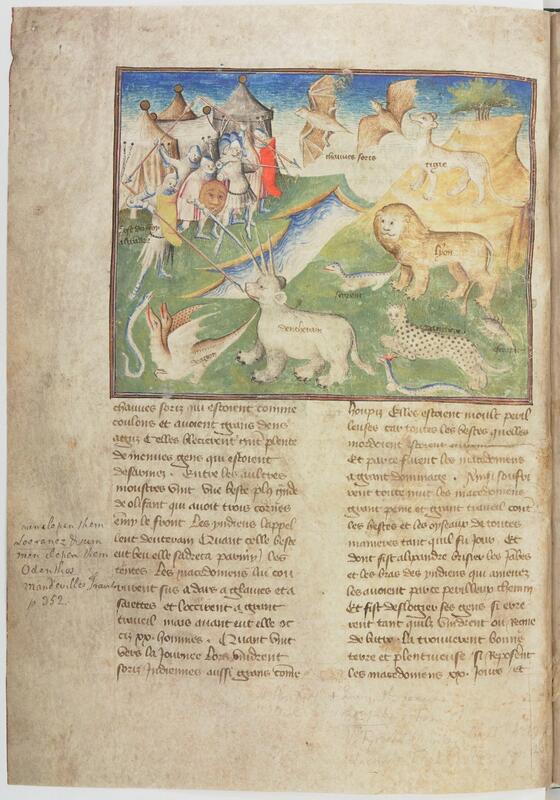 chauves soris
tigre
lyon
serpent
dragon
chauves soriz qui estoient comme
coulons et auoient grans dens
agus Celles blecierent tout plente
de menues gens qui estoient
desarmez. Entre les aultres
monstres vint vne beste plus grande
de olifant qui auoit trois cornes
emy le front Les yndiens lappel
lent Quant celle beste
eut beu elle sadreca parmy les
tentes Les macedoniens lui cou
rurent sus a dars a glaiues et a
saiettes et loccirent a grant
trauail mais auant eut elle oc
cis xx. hommes. Quant vint
vers la Journee Lors vindrent
soris Indiennes aussi grans comme
houpis Elles estoient moult peril
leuses car toutes les bestes quelles
mordoient
Et par ce furent les macedoniens
a grant dommage. Ainsi souffri
rent toute nuit les macedoniens
grant peine et grant trauail contre
les bestes et les oyseaux de toutes
manieres tant quil fu Jour. Et
dont fist alixandre briser les Jambes
et les bras des yndiens qui amenez
les auoient par ce perilleux chemin
Et fist deslogier ses gens si erre
rent tant quilz vindrent ou Regne
de La trouuerent bonne
terre et plentiueuse si Reposerent
les macedoniens xx. Jours et
men clepen them
Odenthos
Mandeville's Travels
p. 352.